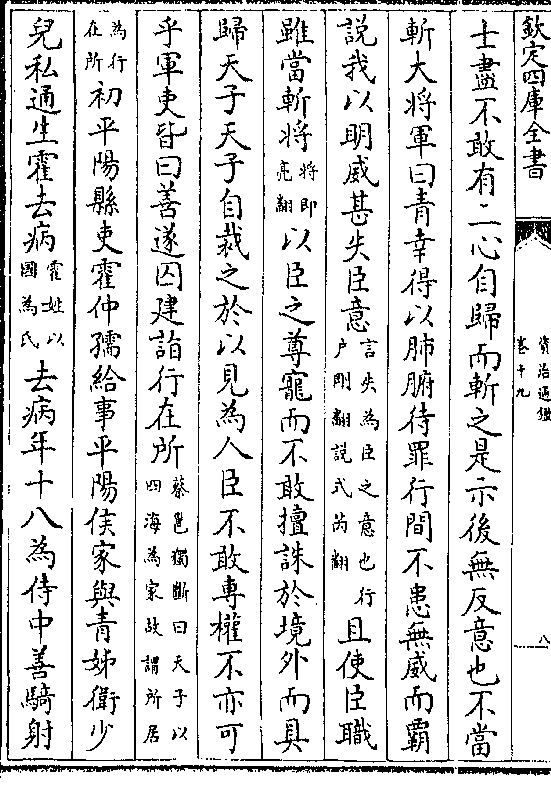 欽定四庫全書
資治通鑑
卷十九
八
士盡不敢有二心自歸而斬之是示後無反意也不當
斬大將軍曰青幸得以肺腑待罪行間不患無威而霸
説我以明威甚失臣意言失為臣之意也行户剛翻説式芮翻且使臣職
雖當斬將將即亮翻以臣之尊寵而不敢擅誅於境外而具
歸天子天子自裁之於以見為人臣不敢專權不亦可
乎軍吏皆曰善遂囚建詣行在所蔡邕獨斷曰天子以四海為家故謂所居
為行在所初平陽縣吏霍仲孺給事平陽侯家與青姊衛少
兒私通生霍去病霍姓以國為氏去病年十八為侍中善騎射